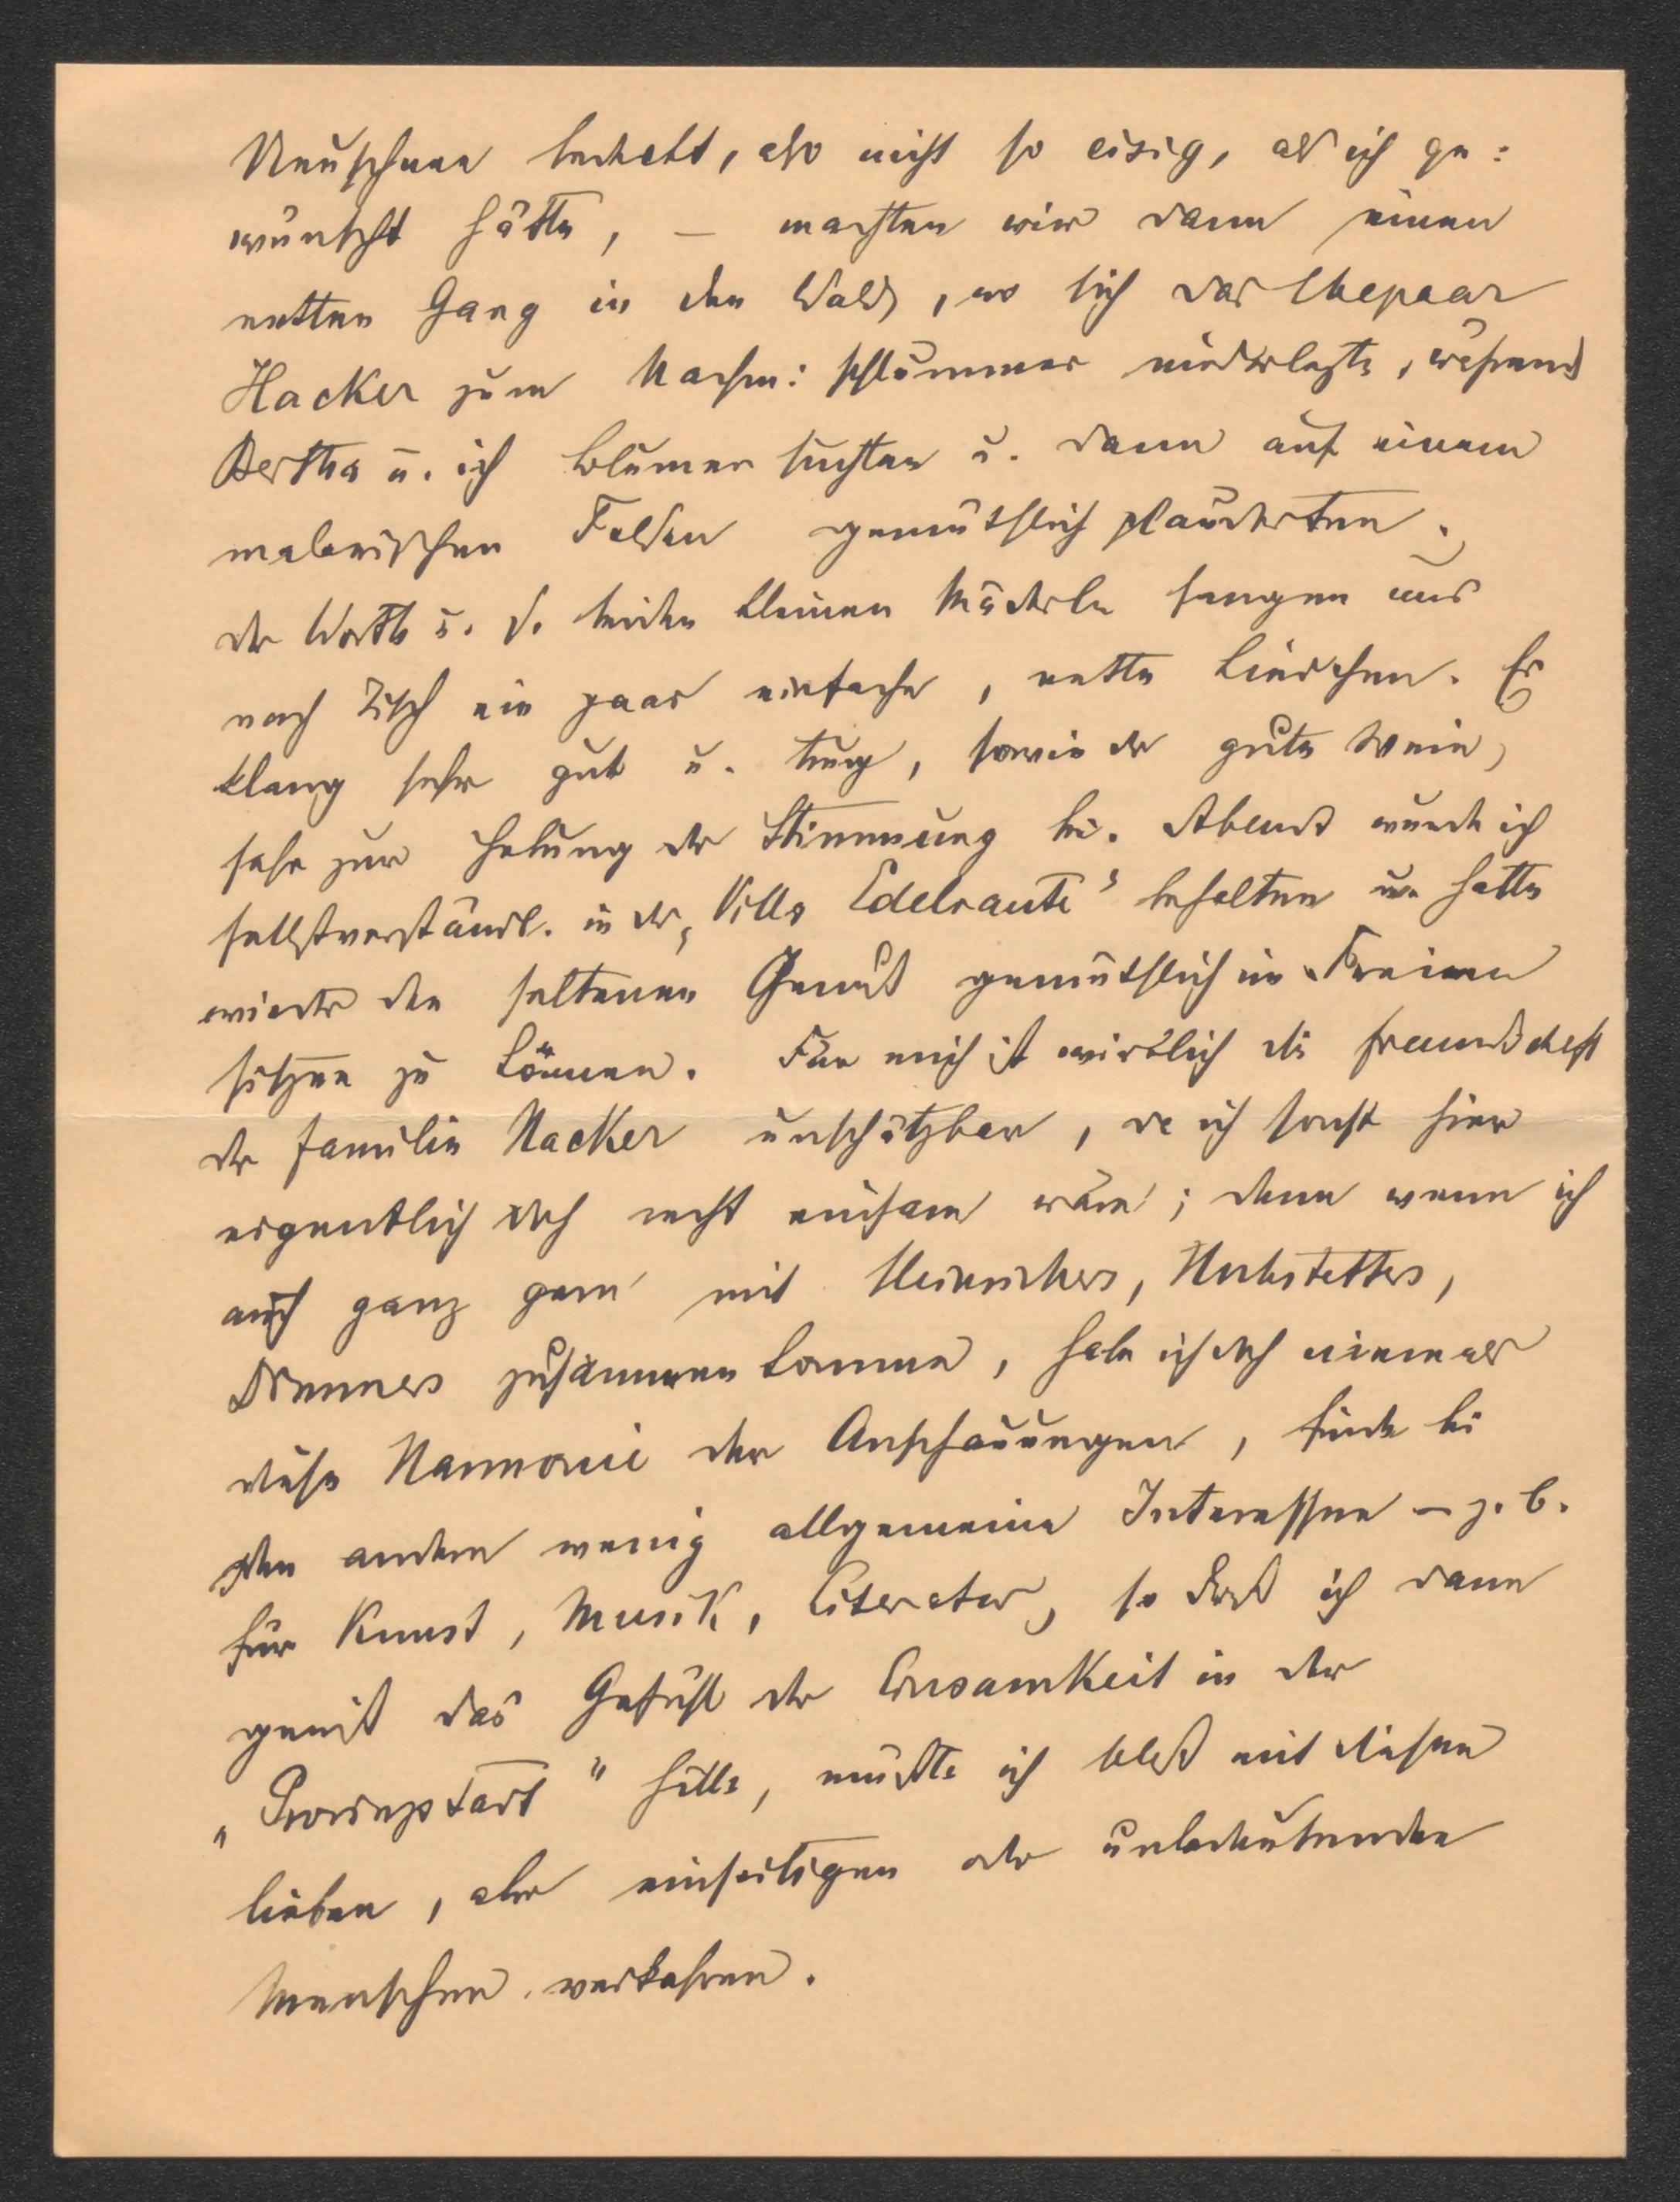 Neuschnee bedeckt, also nicht so eisig, als ich ge:
wünscht hätte, — machten wir dann einen
netten Gang in den Wald, wo sich das Ehepaar
Hacker zum Nachm: schlummer niederlegte, während
Bertha u. ich Blumen suchten u. dann auf einem
malerischen Felsen gemüthlich plauderten.
der Wirth u. s. beiden kleinen Mäderln sangen uns
nach Tisch ein paar einfache, nette Liedchen. Es
klang sehr gut u. trug, sowie der gute Wein,
sehr zur Hebung der Stimmung bei. Abends wurde ich
selbstverständl. in der „Villa Edelraute" behalten u. hatte
wieder den seltenen Genuß gemüthlich im Freien
sitzen zu können. Für mich ist wirklich die Freundschaft
der Familie Hacker unschätzbar, da ich sonst hier
eigentlich doch recht einsam wäre; denn wenn ich
auch ganz gern mit Heinrichers,
zusammen komme, habe ich doch niemals
diese Harmonie der Anschauungen, finde bei
den andern wenig allgemeine Interessen – z. B.
für Kunst, Musik, Literatur, so daß ich dann
gewiß das Gefühl der Einsamkeit in der
„Provinzstadt" hätte, müßte ich bloß mit diesen
lieben, aber einseitigen oder unbedeutenden
Menschen verkehren.